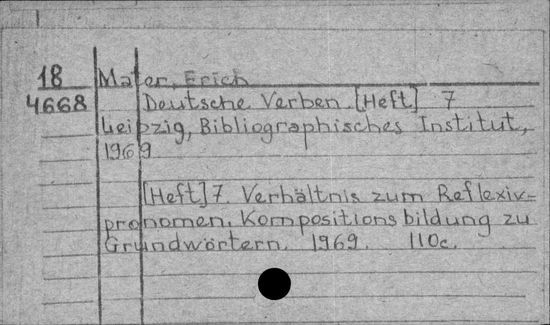 18 Mater, Erich
4668 Deutsche Verben [Heft] 7
Leipzig, Bibliographisches Institut,
1969
[Heft] 7. Verhältnis zum Reflexiv-
pronomen. Kompositionsbildung zu
Grundwörtern. 1969. 110c.